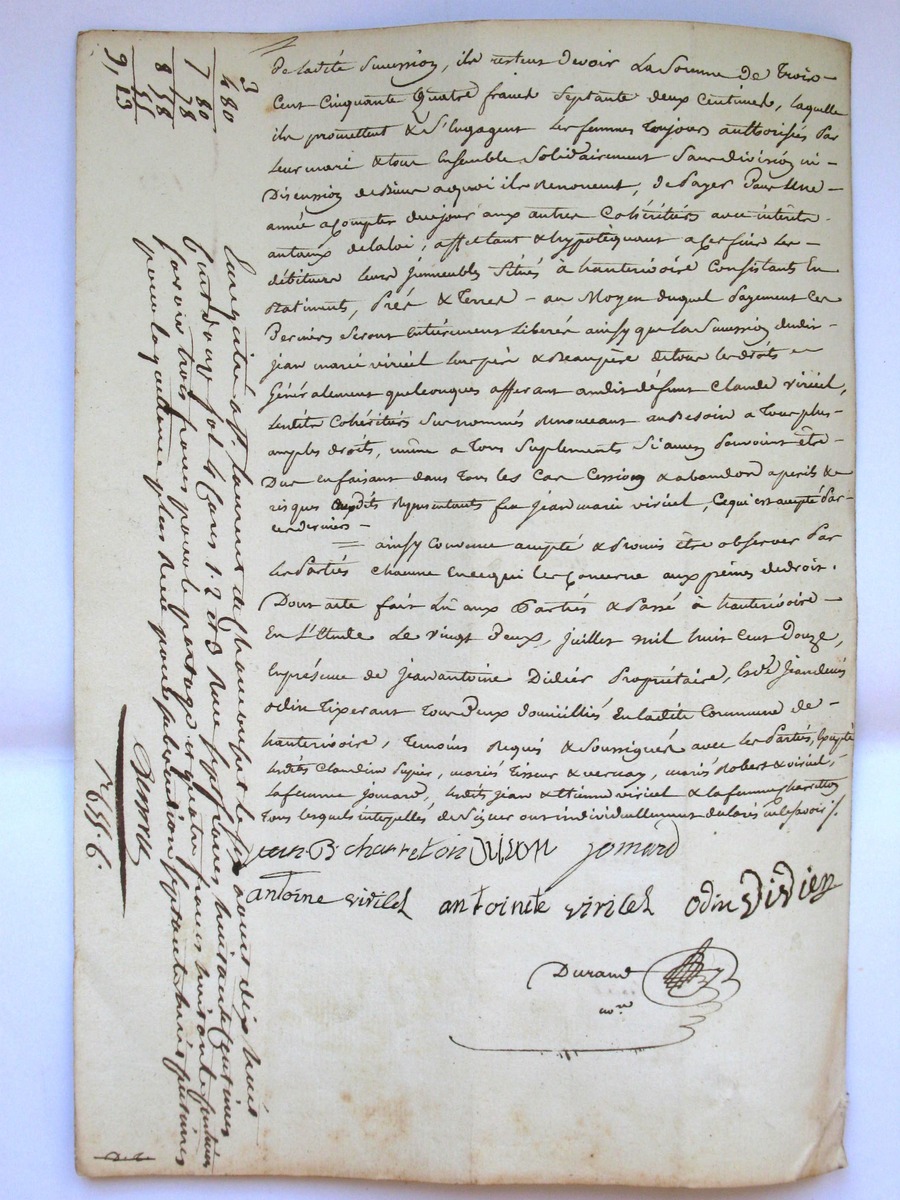 de ladite Succession, ils restent devoir La Somme de Trois
Cent Cinquante Quatre francs Septante deux Centimes, laquelle
ils promettent & S'Engagent les femmes Toujours authorisées Par
Leur mari & tous Ensemble Solidairement Sans division ni
Discussion de Biens aquoi ils Renoncent, de Payer Pour Une
année a Compter de ce jour aux autres Cohéritiers avec intérêts
au taux de la loi, affectant & hypotéquant a Ces fins les
débiteurs leurs jmmeubles Situés à hauterivoire Consistants En
Batiments, Prés & Terres - au Moyen duquel Payement Ces
Derniers Seront Entièrement Libérés ainsy que la Succession dudit
jean marie viricel leur père & Beaupère de tous les droits
Généralement quelconques afferant audit défunt Claude viricel,
Lesdits Cohéritiers Surnommés Renonceant au Besoin a Tous plus
amples droits, même a Tous Suplements Si aucun Pouvoint être
Dus En faisant dans Tous les Cas Cession & abandon a perils &
risques auxdits Représentants feu jean marie viricel, Ce qui est accepté Par
ces derniers
ainsy Convenu accepté & Promis être observer Par
les Parties chacune En ce qui les Concerne aux peines de droit.
Dont acte fait Lû aux Parties & Passé à hauterivoire
En L'Etude Le vingt Deux, juillet mil huit Cent Douze,
En présence de jean antoine Didier Propriétaire, & jean denis
odin Tixerant Tous Deux domiciliés En ladite Commune de
hauterivoire, Temoins Requis & Soussignés avec les Parties, Excepté
lesdits Claudine mariés Tisseur & vernay, mariés Robert & viricel,
La femme jomard, lesdits jean & Etienne viricel & la femme charreton
Tous lesquels interpellés de Signer ont individuellement déclarés ne le Savoir ./.
jean B charreton Dijon jomard
antoine viricel antoinete viricel odin DiDier
Durand
nore
3
480
7 80
78
8 58
85
9, 13
Enregistré à St. Laurent de Chamousset le
août dix huit
Cent Douze fol. 4 Cases 1. 2. et 3 Reçu
Savoir trois francs pour le partage et quatre francs huitante
pour la quittance plus Reçu pour Subvention Septante huit centimes